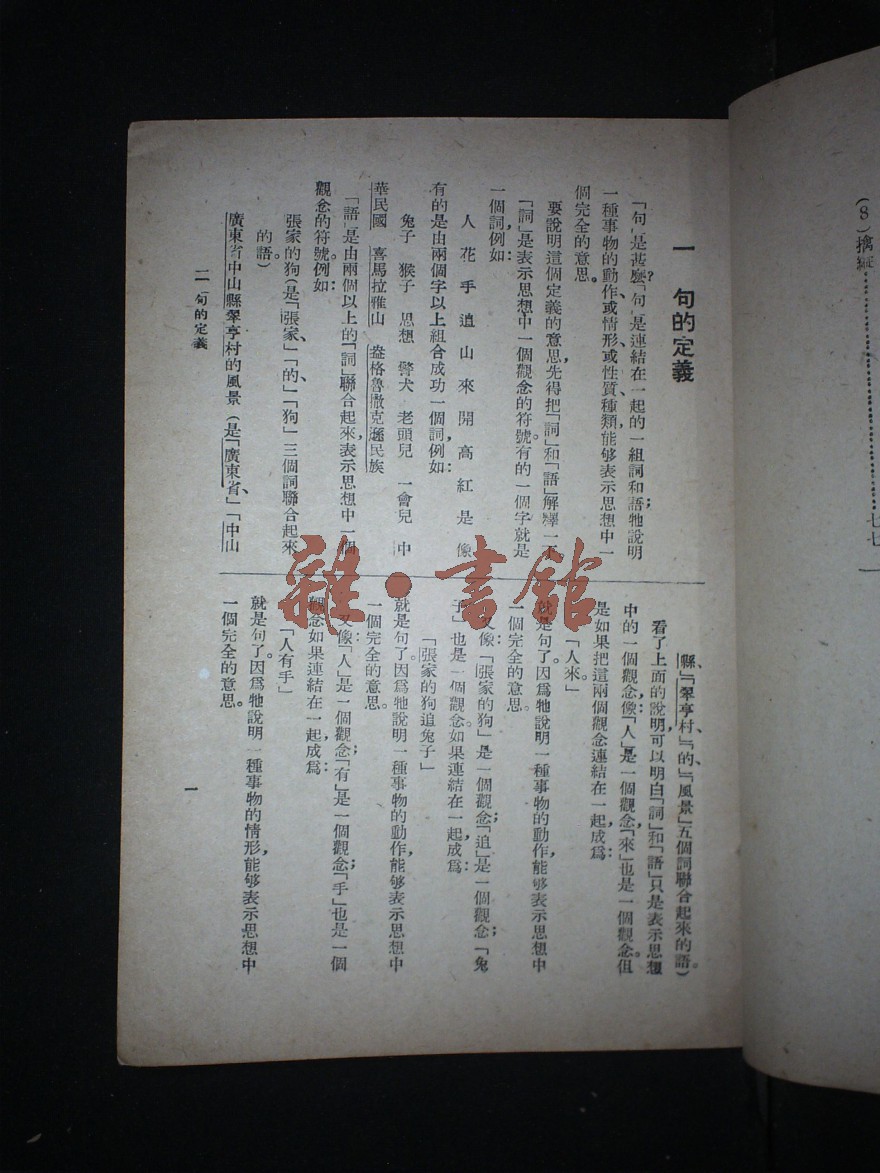 (8)擒縱……………七七
一 句的定義
「句」是甚麼？「句」是連結在一起的一組詞和語；牠說明
一種事物的動作、或情形、或性質種類，能够表示思想中一
個完全的意思。
要說明這個定義的意思，先得把「詞」和「語」解釋一下。
「詞」是表示思想中一個觀念的符號。有的一個字就是
一個詞，例如：
人 花 手 追 山 來 開 高 紅 是 像
有的是由兩個字以上組合成功一個詞，例如：
兔子 猴子 思想 警犬 老頭兒 一會兒 中
華民國 喜馬拉雅山 盎格魯撒克遜民族
「語」是由兩個以上的「詞」聯合起來，表示思想中一個
觀念的符號。例如：
張家的狗（是「張家」、「的」、「狗」三個詞聯合起來
的語。）
廣東省中山縣翠亨村的風景（是「廣東省」、「中山
縣」、「翠亨村」、「的」、「風景」五個詞聯合起來的語。）
看了上面的說明，可以明白「詞」和「語」只是表示思想
中的一個觀念，像：「人」是一個觀念，「來」也是一個觀念。但
是如果把這兩個觀念連結在一起，成爲：
「人來。」
就是句了。因爲牠說明一種事物的動作，能够表示思想中
一個完全的意思。
又像：「張家的狗」是一個觀念；「追」是一個觀念；「兔
子」也是一個觀念。如果連結在一起，成爲：
「張家的狗追兔子」
就是句了。因爲牠說明一種事物的動作，能够表示思想中
一個完全的意思。
又像：「人」是一個觀念；「有」是一個觀念；「手」也是一個
觀念，如果連結在一起，成爲：
「人有手」
就是句了。因爲牠說明一種事物的情形，能够表示思想中
一個完全的意思。
一 句的定義
一
雜·書館